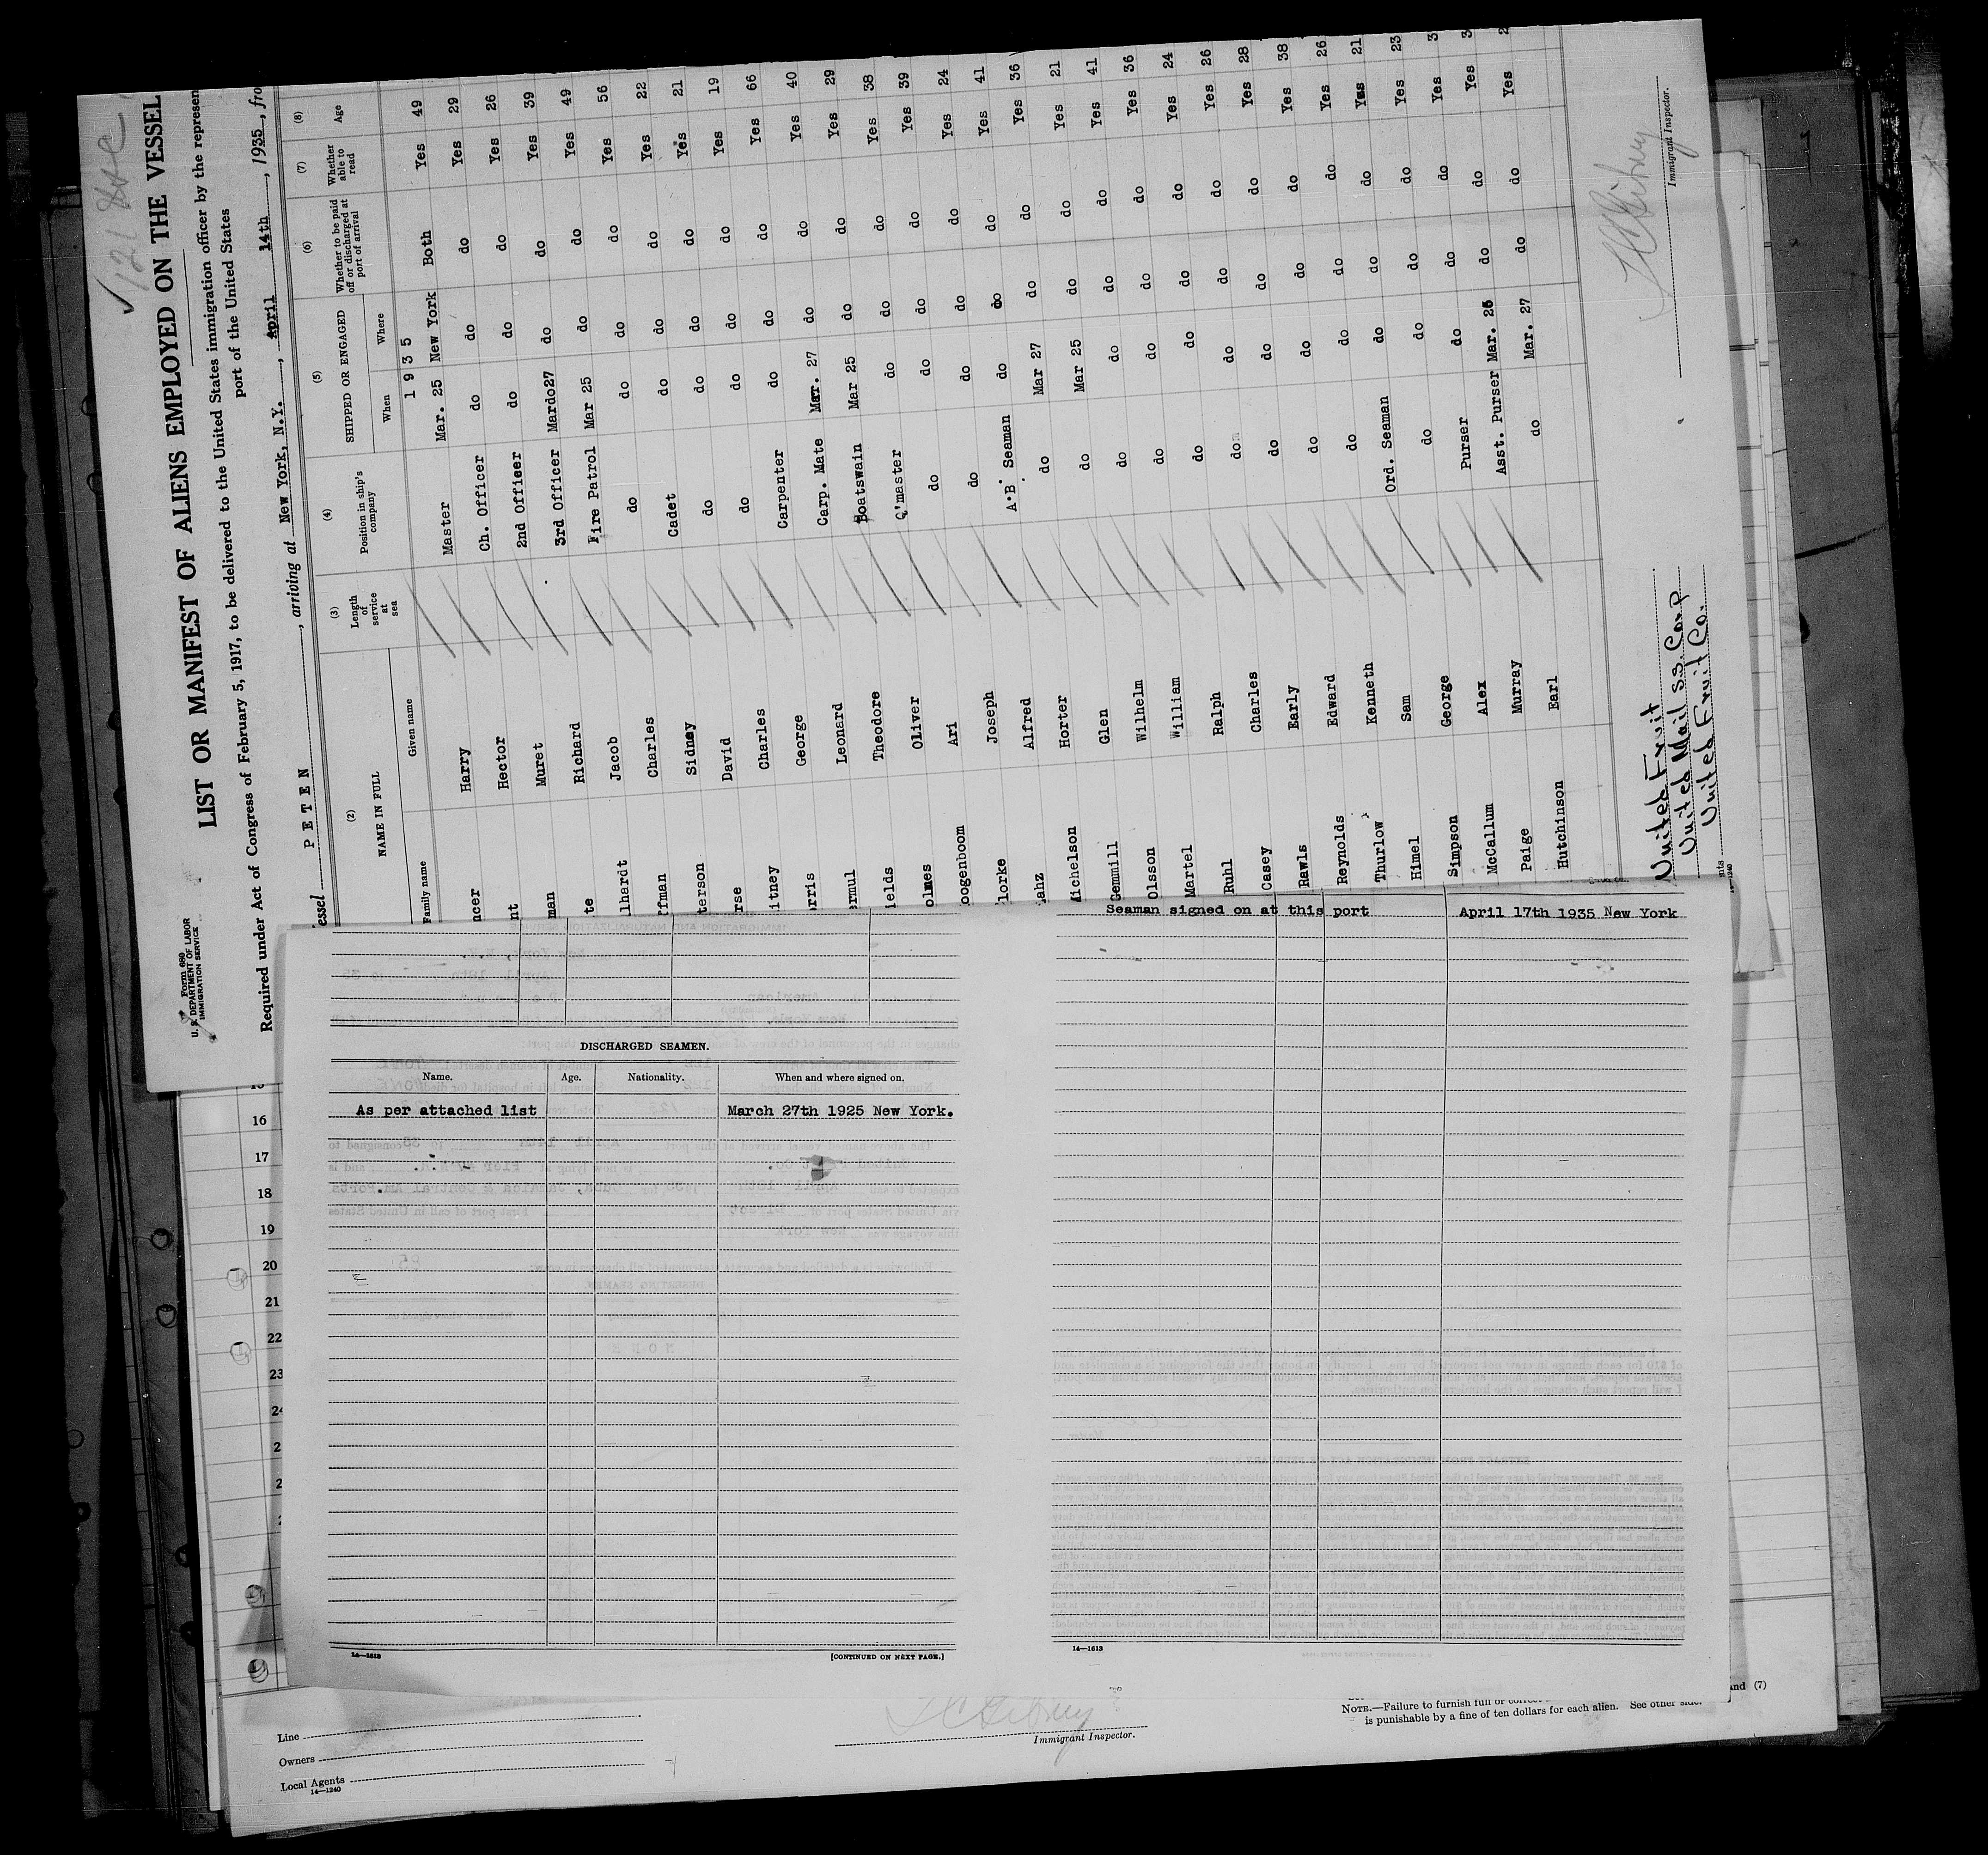 ✓ 121
Form 680
U. S. DEPARTMENT OF LABOR
IMMIGRATION SERVICE
LIST OR MANIFEST OF ALIENS EMPLOYED ON THE VESSEL
Required under Act of Congress of February 5, 1917, to be delivered to the United States immigration officer by the represen
port of the United States
essel PETEN, arriving at New York, N.Y., April 14th, 1935, fro
(2) (3) (4) (5) (6) (7) (8)
NAME IN FULL Length of service at sea Position in ship's company SHIPPED OR ENGAGED Whether to be paid off or discharged at port of arrival Whether able to read Age
Family name Given name When Where
1935
ncer Harry Master Mar. 25 New York Both Yes 49
nt Hector Ch. Officer do do do Yes 29
man Muret 2nd Officer do do do Yes 26
te Richard 3rd Officer Mardo27 do do Yes 39
lhardt Jacob Fire Patrol Mar 25 do do Yes 49
ffman Charles do do do do Yes 56
terson Sidney Cadet do do do Yes 22
rse David do do do do Yes 21
itney Charles do do do do Yes 19
rris George Carpenter do do do Yes 66
ermul Leonard Carp. Mate Mar. 27 do do Yes 40
ields Theodore Boatswain Mar 25 do do Yes 29
olmes OLiver Q'master do do do Yes 38
oogenboom Ari do do do do Yes 39
lorke Joseph do do do do Yes 24
ahz Alfred A.B. Seaman do do do Yes 41
Michelson Horter do Mar 27 do do Yes 36
Gemmill Glen do Mar 25 do do Yes 21
Olsson Wilhelm do do do do Yes 41
Martel William do do do do Yes 36
Ruhl Ralph do do do do Yes 24
Casey Charles do do do do Yes 26
Rawls Early do do do do Yes 28
Reynolds Edward do do do do Yes 38
Thurlow Kenneth do do do do Yes 26
Himel Sam Ord. Seaman do do do Yes 21
Simpson George do do do do Yes 23
McCallum Alex Purser do do do Yes 3
Paige Murray Asst. Purser Mar. 26 do do Yes 3
Hutchinson Earl do Mar. 27 do do Yes 2
United Fruit
United Mail S.S. Corp
United Fruit Co.
Immigrant Inspector.
Seaman signed on at this port April 17th 1935 New York
DISCHARGED SEAMEN.
Name. Age. Nationality. When and where signed on.
As per attached list March 27th 1925 New York.
14—1613 [CONTINUED ON NEXT PAGE.]
14—1613
16
17
18
19
20
21
22
23
24
Line
Owners
Local Agents
14—1240
Immigrant Inspector.
and (7)
NOTE.—Failure to furnish full or
is punishable by a fine of ten dollars for each alien. See other side.